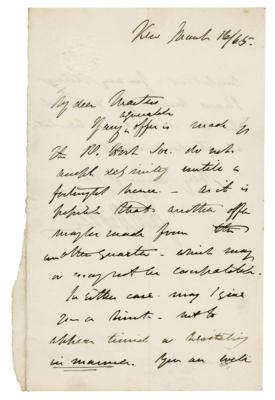 Kew March 16/65.
My dear Masters
agreeable
If any offer is made by
the R. Hort Soc. do not
accept definitely until a
fortnight hence - as it is
possible that another offer
may be made from
another quarter - which may
or may not be compatible.
In either case may I give
you a hint - not to
appear timid or hesitating
in manner. You are well